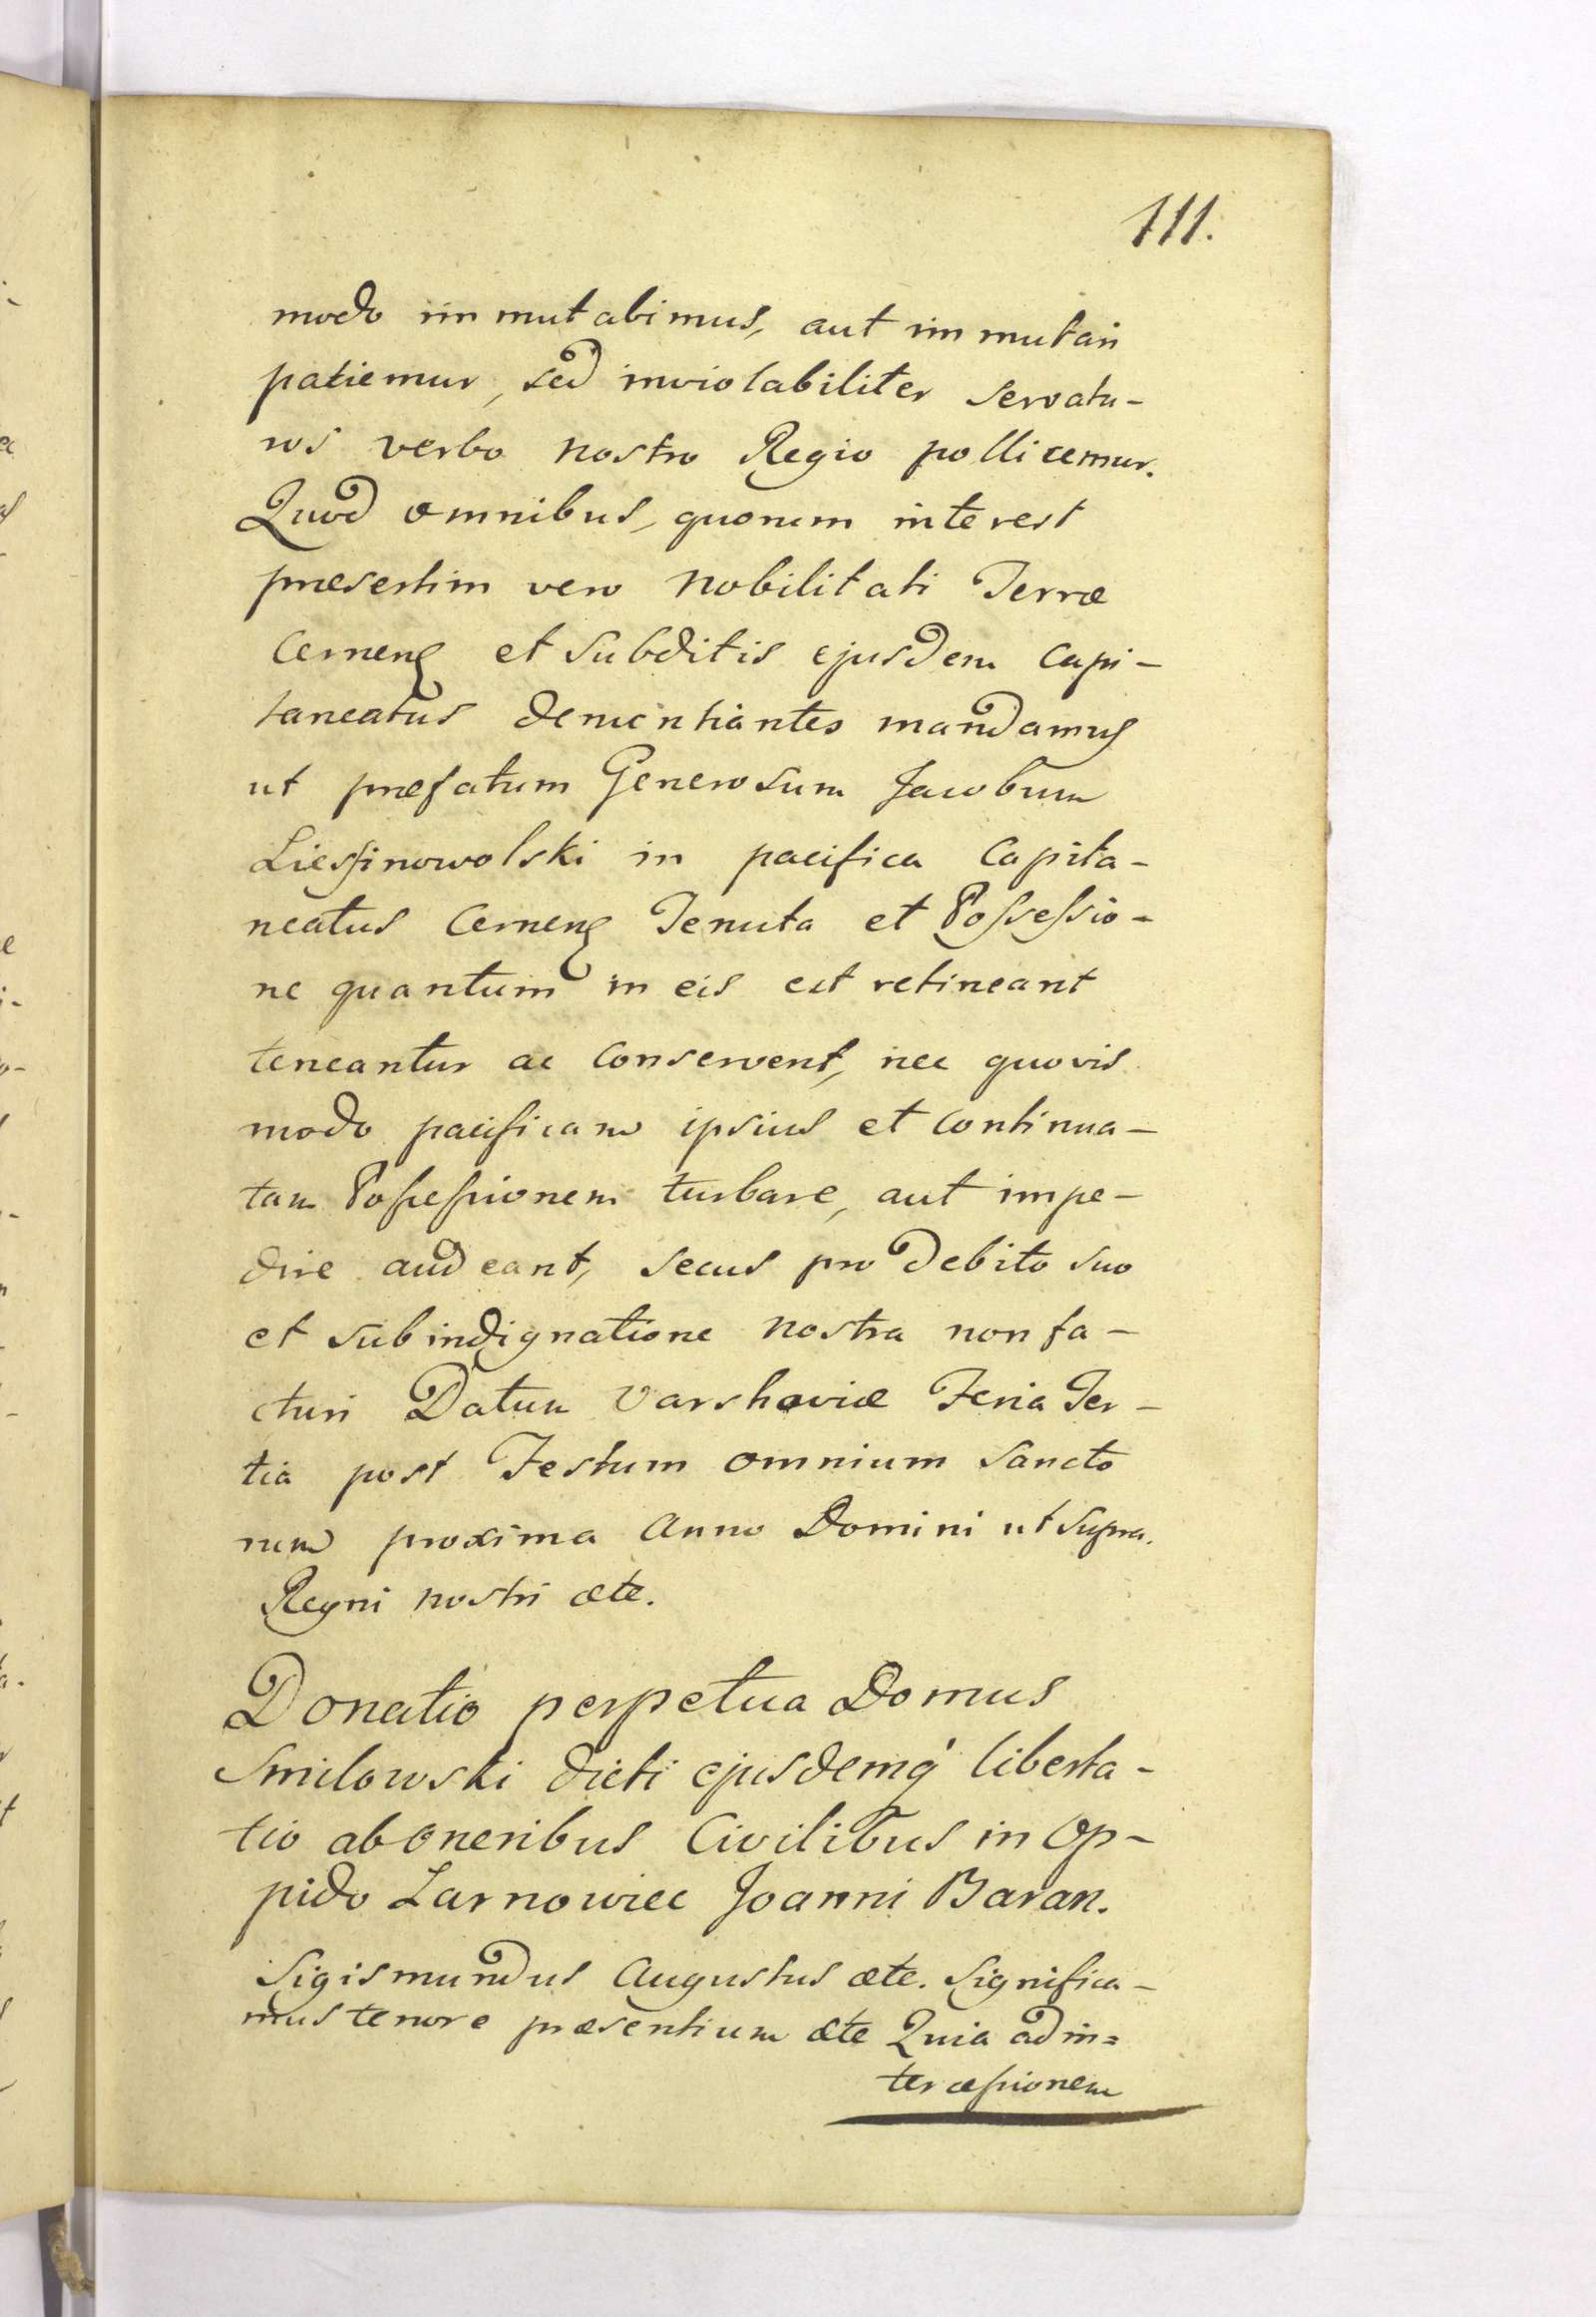 111.
modo immutabimus, aut immutari
patiemur, sed inviolabiliter servatu-
ros verbo nostro Regio pollicemur.
Quod omnibus, quorum interest
præsertim vero Nobilitati Terræ
Cernenꝭ et subditis ejusdem Capi-
taneatus denuntiantes mandamus
ut præfatum Generosum Jacobum
Liesfinowolski in pacifica Capita-
neatus Cernenꝭ Tenuta et Possessio-
ne quantum in eis est retineant
teneantur ac Conservent, nec quovis
modo pacificam ipsius et continua-
tam Possessionem turbare, aut impe-
dire audeant, secus pro debito suo
et sub indignatione nostra non fa-
cturi Datum Varshaviæ Feria Ter-
tia post Festum omnium Sancto
rum proxima Anno Domini ut supra.
Regni nostri æte.
Donatio perpetua Domus
Smilowski dicti ejusdemq' liberta-
tio ab Oneribus Civilibus in Op-
pido Zarnowiec Joanni Baran.
Sigismundus Augustus æte. Significa-
mus tenore præsentium æte Quia ad in=
tercessionem